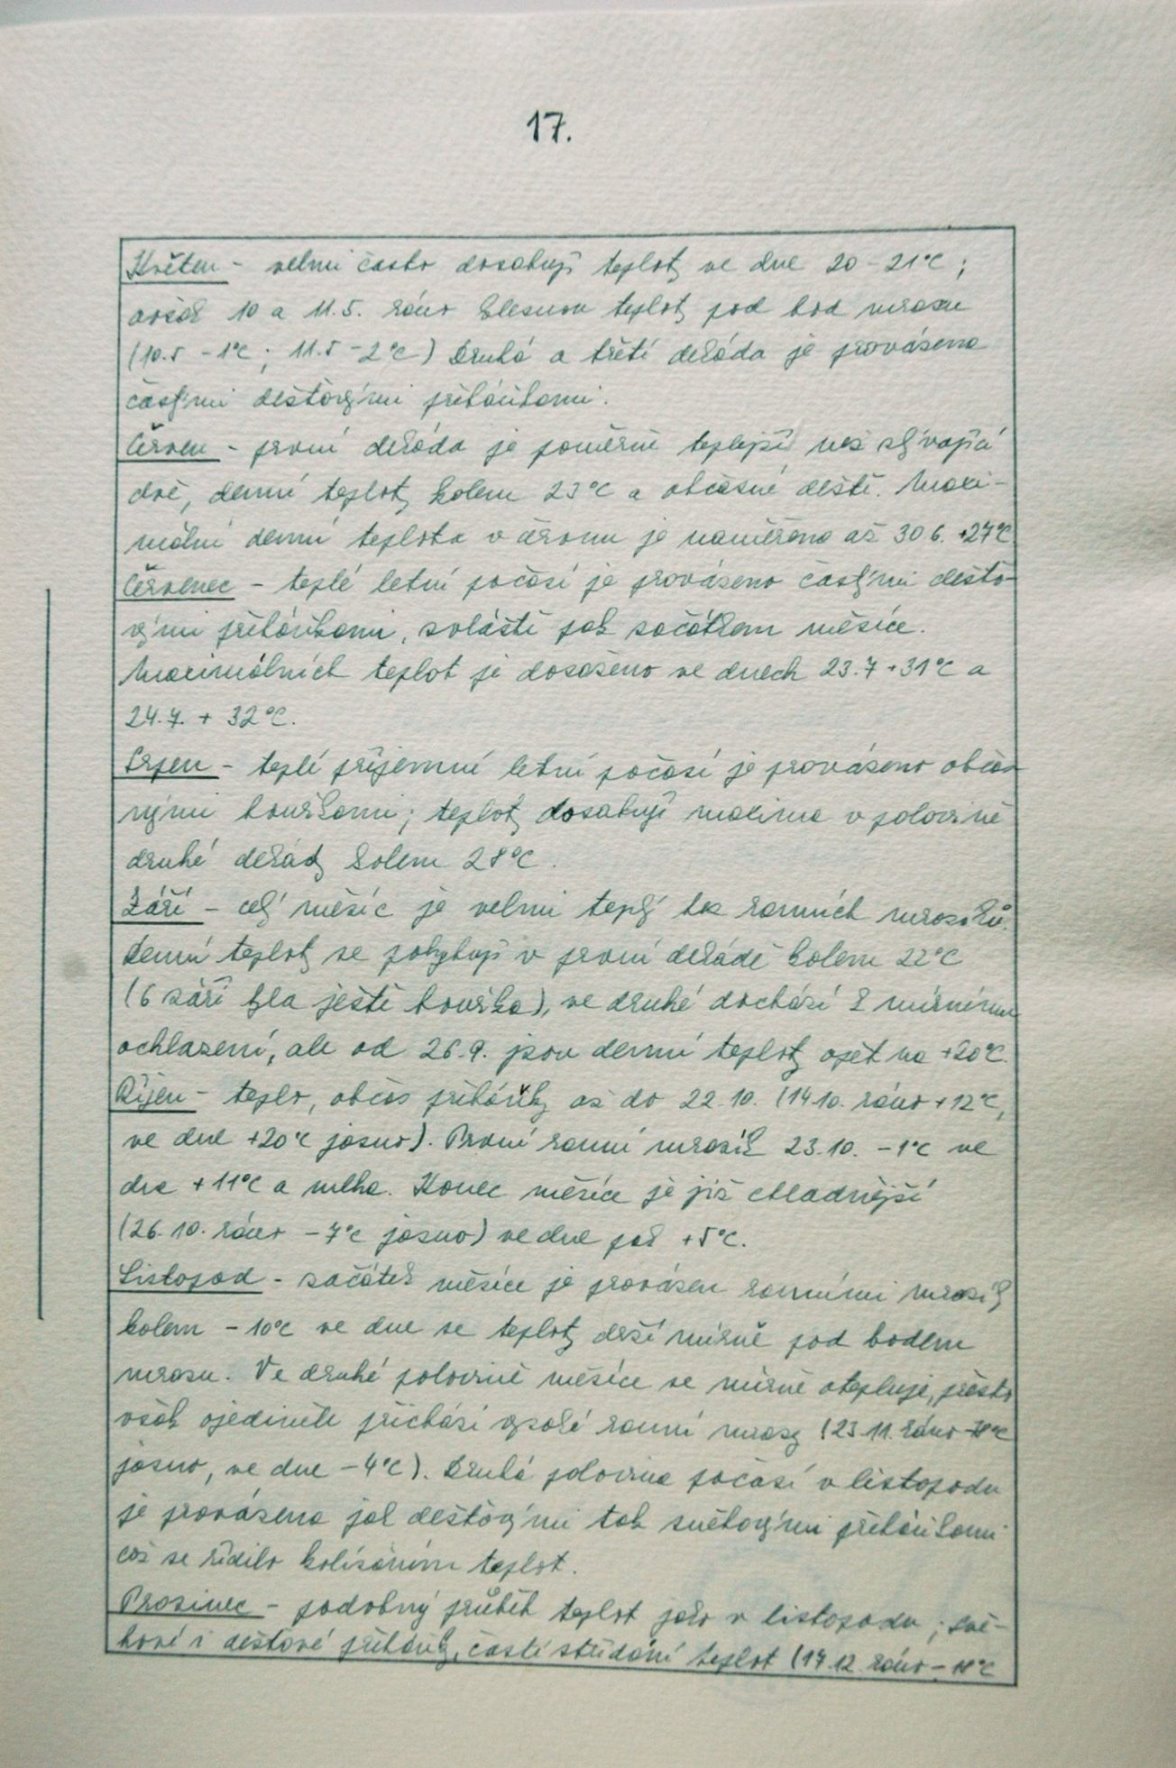 17.
Květen - velmi často dosahují teploty ve dne 20-21°C;
avšak 10 a 11.5. ráno klesnou teploty pod bod mrazu
(10.5 -1°C; 11.5 -2°C) Druhá a třetí dekáda je provázena
častými dešťovými přeháňkami.
Červen - první dekáda je poměrně teplejší než zbývající
dvě, denní teploty kolem 23°C a občasné deště. Maxi-
mální denní teplota v červnu je naměřena až 30 6. +27°C
Červenec - teplé letní počasí je provázeno častými dešťo-
vými přeháňkami, zvláště pak začátkem měsíce.
Maximálních teplot je dosaženo ve dnech 23.7 +31°C a
24.7. + 32°C.
Srpen - teplé příjemné letní počasí je provázeno občas
nými bouřkami; teploty dosahují maxima v polovině
druhé dekády kolem 28°C.
Září - celý měsíc je velmi teplý bez ranních mrazíků.
Denní teploty se pohybují v první dekádě kolem 22°C
(6 září byla ještě bouřka), ve druhé dochází k mírnému
ochlazení, ale od 26.9. jsou denní teploty opět na +20°C.
Říjen - teplo, občas přeháňky až do 22.10. (14.10. ráno +12°C,
ve dne +20°C jasno). První ranní mrazík 23.10. -1°C ve
dne +11°C a mlha. Konec měsíce je již chladnější
(26.10. ráno -7°C jasno) ve dne pak +5°C.
Listopad - začátek měsíce je provázen ranními mrazíky
kolem -10°C ve dne se teploty drží mírně pod bodem
mrazu. Ve druhé polovině měsíce se mírně otepluje, přesto
však ojediněle přichází vysoké ranní mrazy (23.11. ráno
jasno, ve dne -4°C). Druhá polovina počasí v listopadu
je provázena jak dešťovými tak sněhovými přeháňkami
což se řídilo kolísáním teplot.
Prosinec - podobný průběh teplot jako v listopadu; sně-
hové i dešťové přeháňky, časté střídání teplot (17.12. ráno